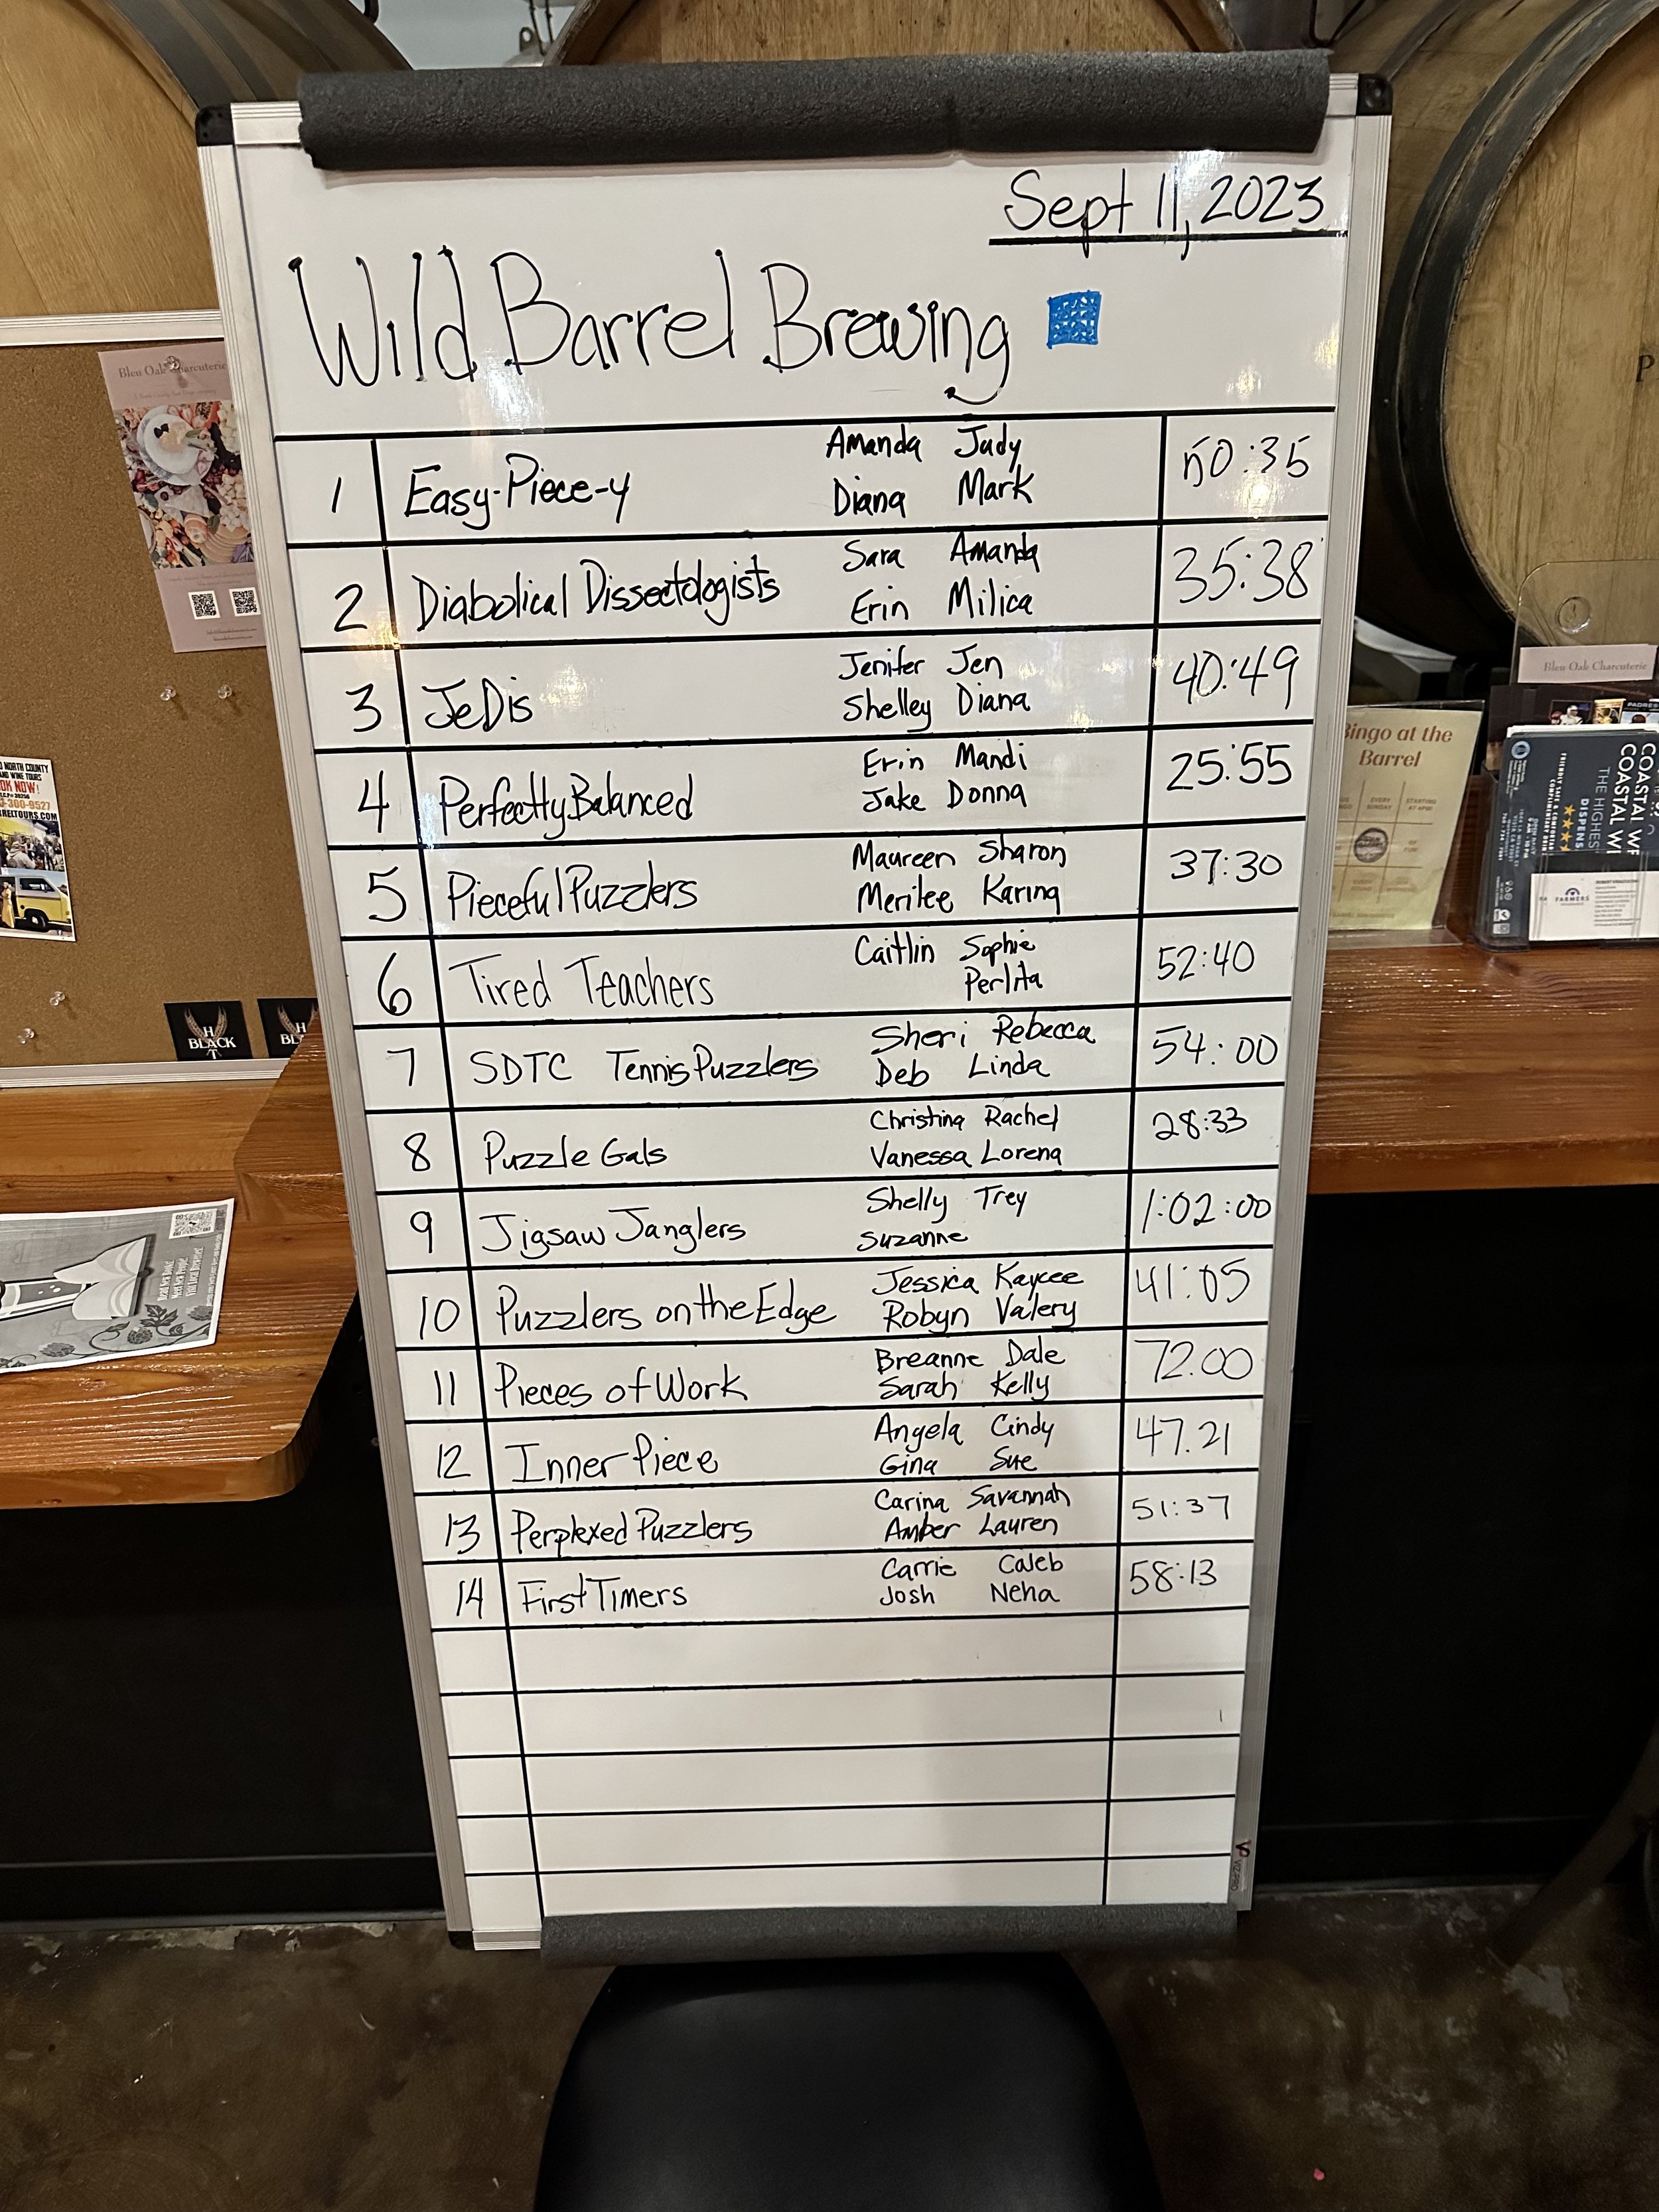 Sept 11, 2023
Wild Barrel Brewing
1 Easy-Piece-y Amanda Judy Diana Mark 50:35
2 Diabolical Dissectologists Sara Amanda Erin Milica 35:38
3 JeDis Jenifer Jen Shelley Diana 40:49
4 Perfectly Balanced Erin Mandi Jake Donna 25:55
5 Pieceful Puzzlers Maureen Sharon Merilee Karina 37:30
6 Tired Teachers Caitlin Sophie Perlita 52:40
7 SDTC Tennis Puzzlers Sheri Rebecca Deb Linda 54:00
8 Puzzle Gals Christina Rachel Vanessa Lorena 28:33
9 Jigsaw Janglers Shelly Trey Suzanne 1:02:00
10 Puzzlers on the Edge Jessica Kaycee Robyn Valery 41:05
11 Pieces of Work Breanne Dale Sarah Kelly 72.00
12 Inner Piece Angela Cindy Gina Sue 47.21
13 Perplexed Puzzlers Carina Savannah Amber Lauren 51:37
14 First Timers Carrie Caleb Josh Neha 58:13
VIZ-PRO
Bleu Oak Charcuterie
NORTH COUNTY
AND WINE TOURS
OK NOW!
-300-9527
RELTOURS.COM
H
BLACK
T
H
BL
Read Sex Police
Bleu Oak Charcuterie
Bingo at the
Barrel
EVERY
SUNDAY
STARTING
AT 4PM
PADRES
COASTAL WE
THE HIGHES
DISPENS
FARMERS